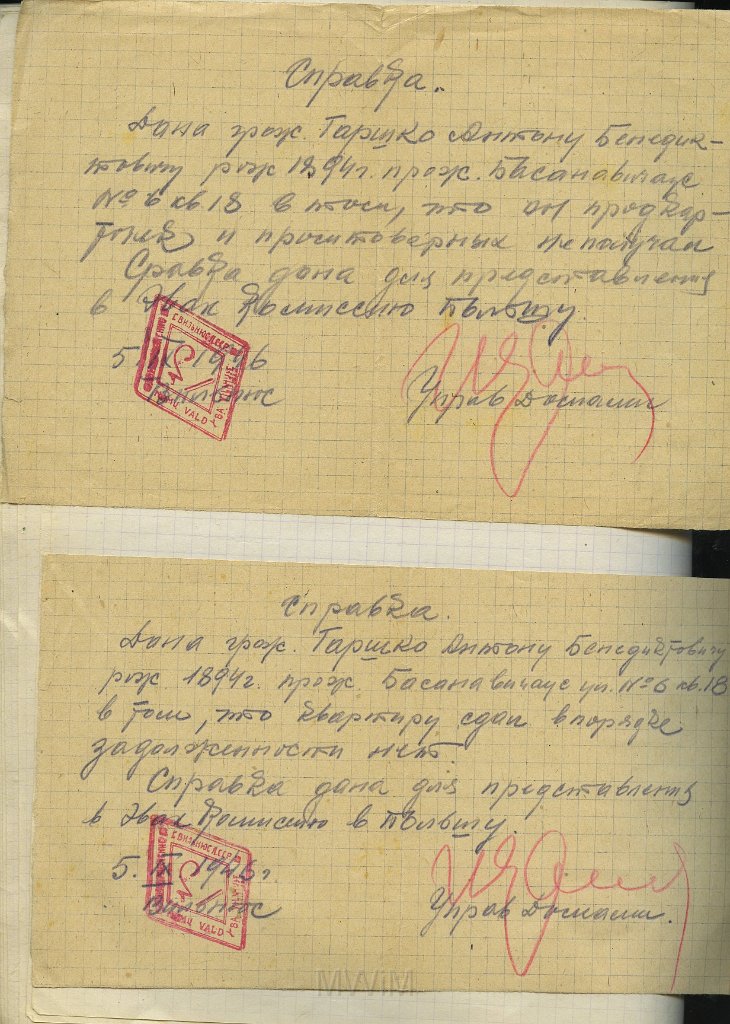 Справка.
Дана граж. Гаршко Антону Бенедик-
товичу рож 1894г. прож. Басанавичаус
№ 6 кв 18 в том, что он продкар-
точек и промтоварных не получал
Справка дана для представления
в Эвак Комиссию Польшу.
5. IX 1946
Вильнюс Управ Домами
Справка.
Дана граж. Гаршко Антону Бенедиктовичу
рож 1894г. прож. Басанавичаус ул. № 6 кв. 18
в том, что квартиру сдал в порядке
задолженности нет.
Справка дана для представления
в Эвак Комиссию в Польшу.
5. IX 1946 г
Вильнюс Управ Домами.
MWiM